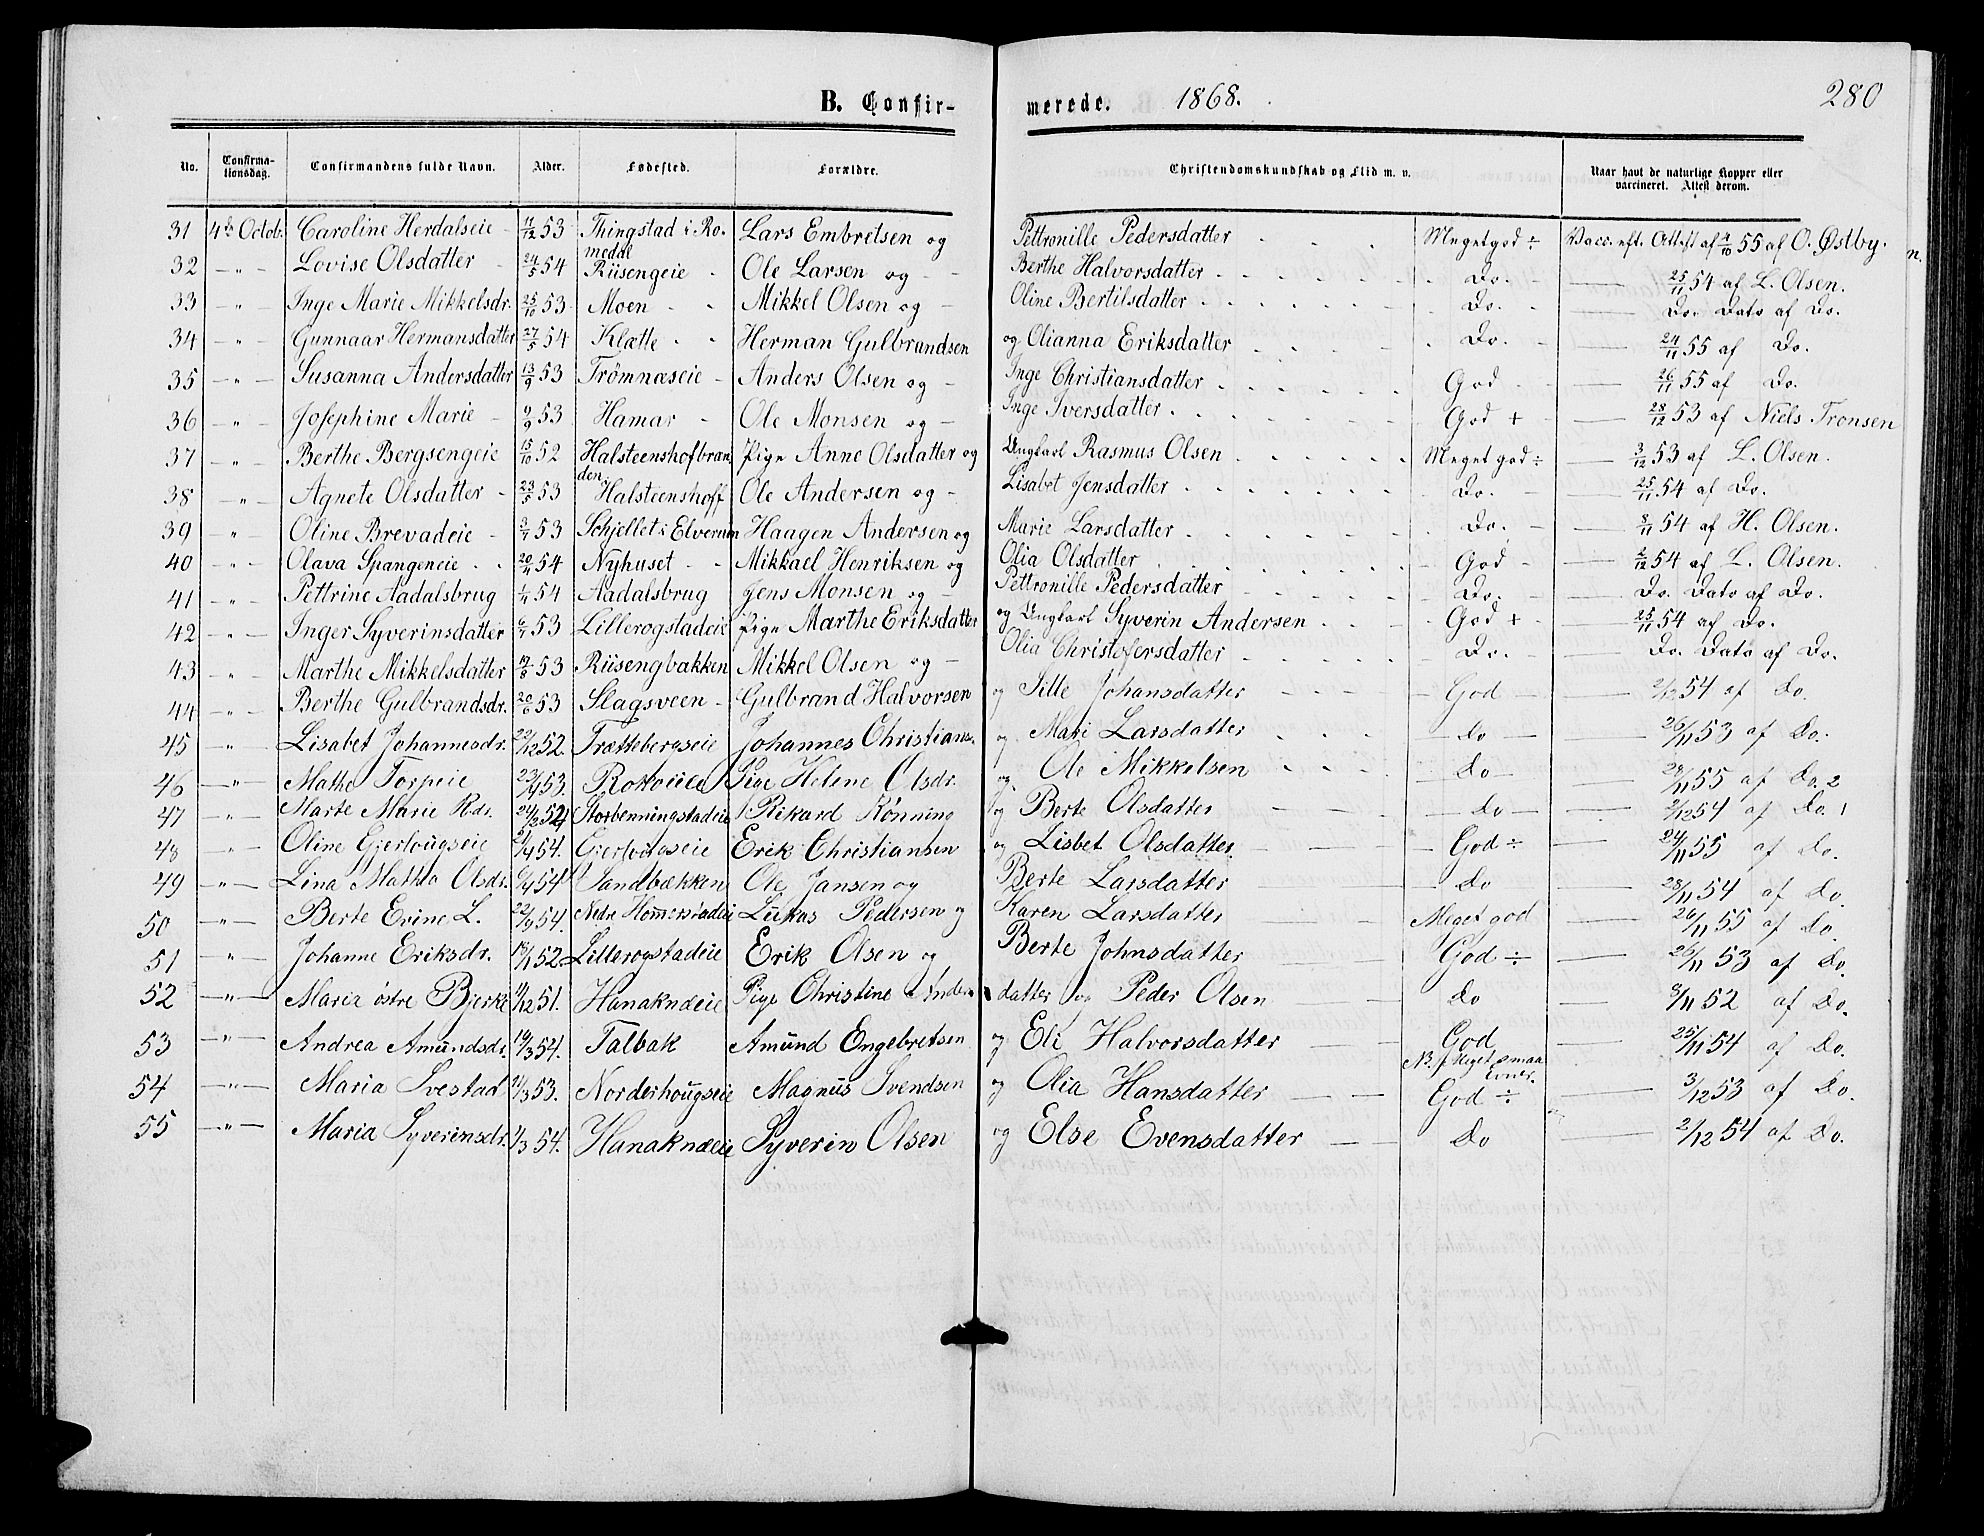 B. Confirmerede. 1868. 280
No. Confirmationsdag. Confirmandens fulde Navn. Alder. Fødested. Forældre. Christendomskundskab og Flid m. v. Naar havt de naturlige Kopper eller vaccineret. Attest derom.
31 4de Octob. Caroline Herdalseie 17/12 53 Thingstad i Romedal Lars Embretsen og Pettronille Pedersdatter Megetgod ÷ Vacc. eft. Attest af 4/10 55 af O. Østby.
32 " Lovise Olsdatter 24/5 54 Riisengeie Ole Larsen og Berthe Halvorsdatter Do. 25/11 54 af L. Olsen.
33 " Inge Marie Mikkelsdr. 25/10 53 Moen Mikkel Olsen og Oline Bertilsdatter Do. Do. Dato af Do.
34 " Gunnaar Hermansdatter 27/5 54 Klætte Herman Gulbrandsen og Olianna Eriksdatter Do. 24/11 55 af Do.
35 " Susanna Andersdatter 13/9 53 Trømnæseie Anders Olsen og Inge Christiansdatter God 26/11 55 af Do.
36 " Josephine Marie 9/9 53 Hamar Ole Monsen og Inge Iversdatter God + 28/12 53 af Niels Tronsen
37 " Berthe Bergsengeie 15/10 52 Halsteenshofbranden Pige Anne Olsdatter og Ungkarl Rasmus Olsen Meget god ÷ 3/12 53 af L. Olsen.
38 " Agnete Olsdatter 23/5 53 Halsteenshoff Ole Andersen og Lisabet Jensdatter Do. 25/11 54 af Do.
39 " Oline Brevadeie 3/7 53 Schjellet i Elverum Haagen Andersen og Marie Larsdatter Do. 8/11 54 af H. Olsen.
40 " Olava Spangeneie 20/4 54 Nyhuset Mikkael Henriksen og Olia Olsdatter God 2/12 54 af L. Olsen.
41 " Pettrine Aadalsbrug 54 Aadalsbrug Jens Monsen og Pettronille Pedersdatter Do. Do. Dato af Do.
42 " Inger Syverinsdatter 6/7 53 Lillerogstadeie Pige Marthe Eriksdatter og Ungkarl Syverin Andersen God + 25/11 54 af Do.
43 " Marthe Mikkelsdatter 53 Riisengbakken Mikkel Olsen og Olia Christofersdatter Do. Do. Dato af Do.
44 " Berthe Gulbrandsdr. 20/6 53 Slagsveen Gulbrand Halvorsen og Sitte Johansdatter God 2/12 54 af Do.
45 " Lisabet Johannesdr. 22/12 52. Trættebergseie Johannes Christians. og Mari Larsdatter do 26/11 53 af Do.
46 " Mathe Torpeie 23/4 53. Rokoeie Pige Helene Olsdr. og Ole Mikkelsen do 29/11 55 af Do. 2
47 " Marte Marie Rdr. Storbenningstadeie Rikard Rønning og Berte Olsdatter do 2/12 54 af Do. 1
48 " Oline Gjerlougseie 21/4 54. Gjerlougseie Erik Christiansen og Lisbet Olsdatter God ÷ 24/11 55 af do.
49 " Lina Mathea Olsdr. 6/4 54 Sandbækken Ole Jansen og Berte Larsdatter do 28/11 54 af Do.
50 " Berte Erine L. 22/9 54. Nedre Hommerstadeie Lukas Pedersen og Karen Larsdatter Meget god 26/11 55 af Do.
51 " Johanne Eriksdr. 13/1 52. Lillerogstadeie Erik Olsen og Berte Johnsdatter God ÷ 26/11 53 af Do.
52 " Maria østre Bjerke 51. Hanaknæeie Pige Christine Andersdatter og Peder Olsen do 8/11 52 af Do.
53 " Andrea Amundsdr. 19/3 54. Talbak Amund Engebretsen og Eli Halvorsdatter God 25/11 54 af Do.
NB. Meget smaa Evner.
54 " Maria Svestad 21/3 53. Norderhougseie Magnus Svendsen og Olia Hansdatter God ÷ 3/12 53 af Do.
55 " Maria Syverinsdr. 1/3 54. Hanaknæeie Syverin Olsen og Else Evensdatter do 2/12 54 af Do.